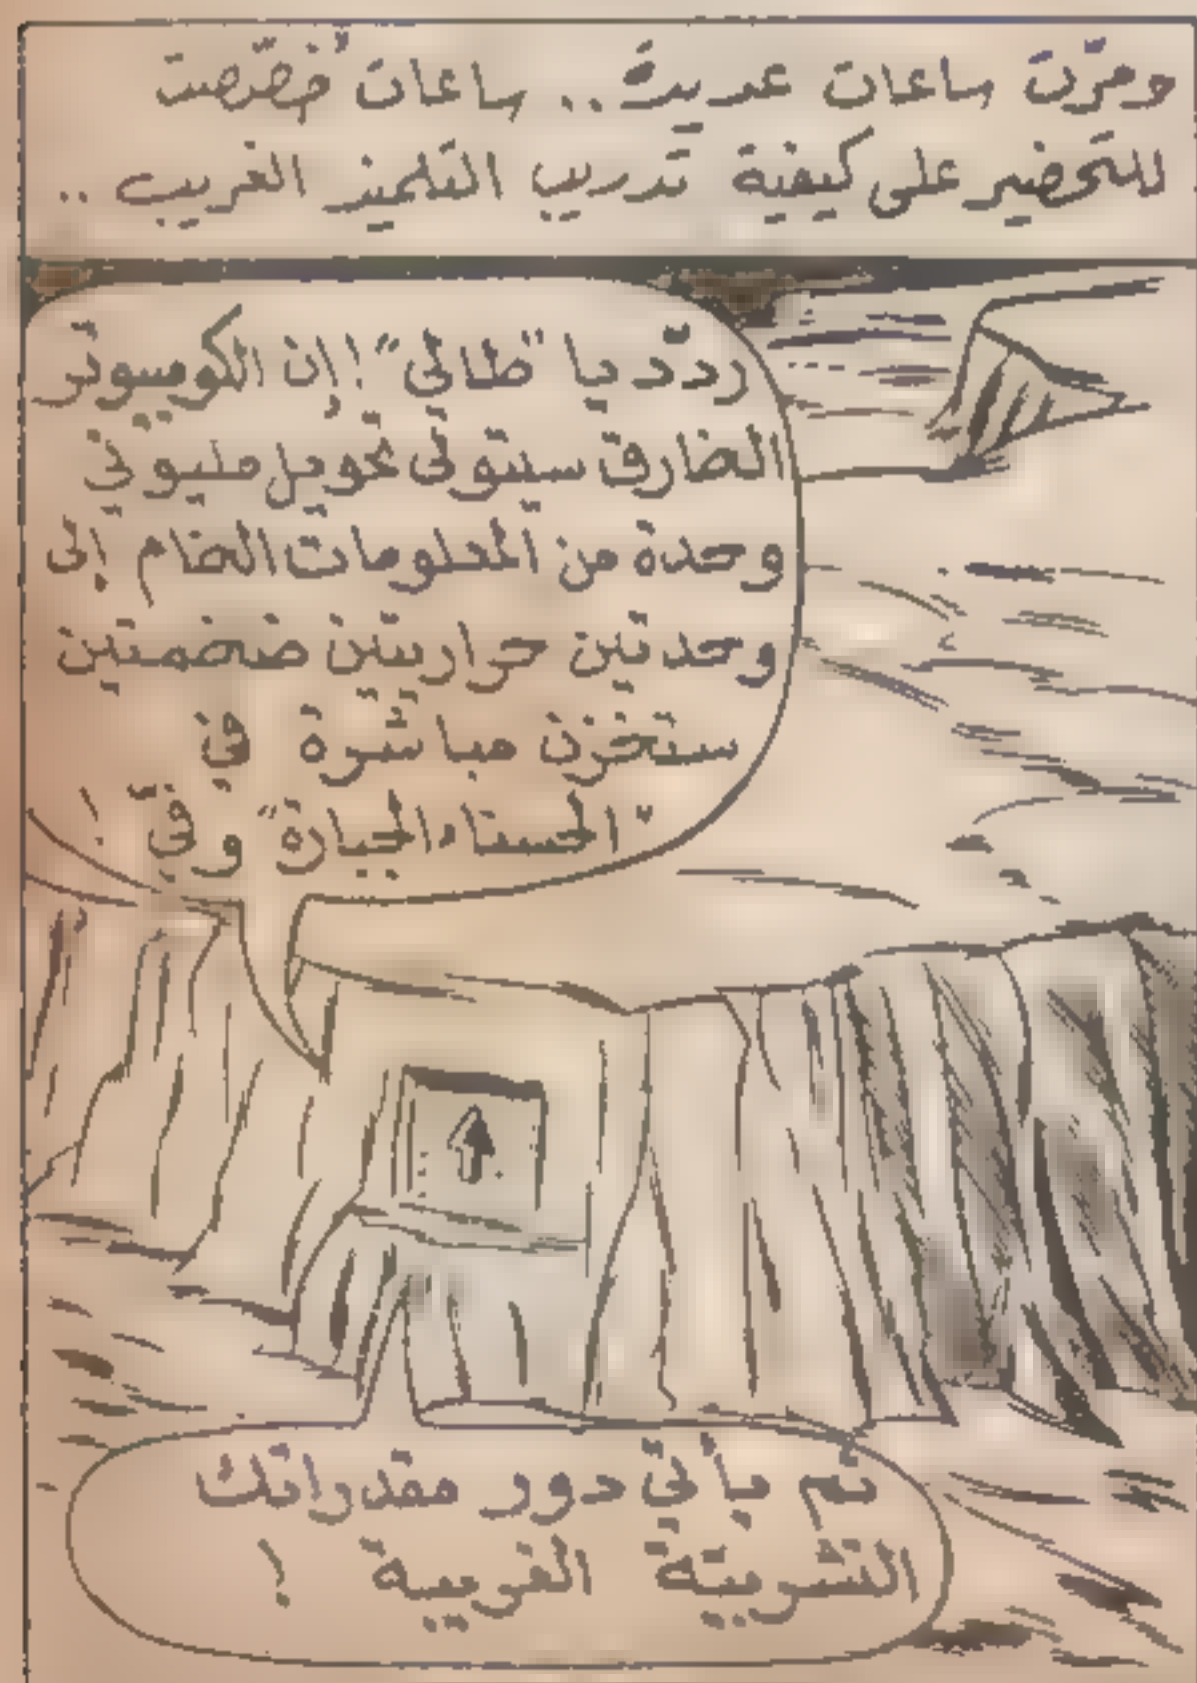 ومرّت ساعات عديدة .. ساعات خُصّصت
للتحضير على كيفية تدريب التلميذ الغريب ..
ردّد يا "طالي"! إن الكومبيوتر
الخارق سيتولى تحويل مليوني
وحدة من المعلومات الخام إلى
وحدتين حراريتين ضخمتين
ستخزن مباشرة في
"الحسناء الجبارة" وفيّ !
ثم يأتي دور مقدراتك
التشريبيّة الغريبة !